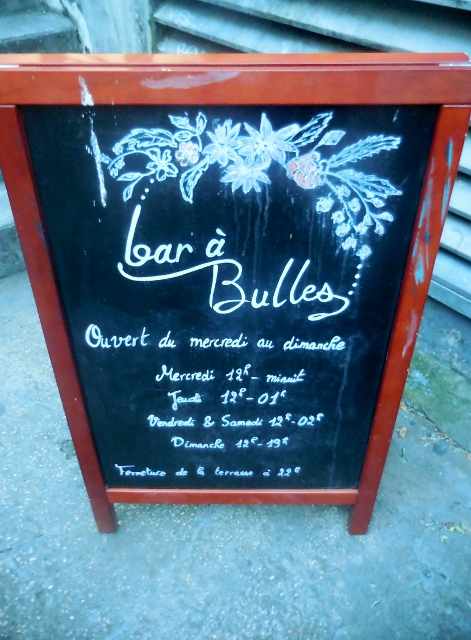 bar à
Bulles
Ouvert du mercredi au dimanche
Mercredi 12h - minuit
Jeudi 12h - 01h
Vendredi & Samedi 12h - 02h
Dimanche 12h - 19h
Fermeture de la terrasse à 22h